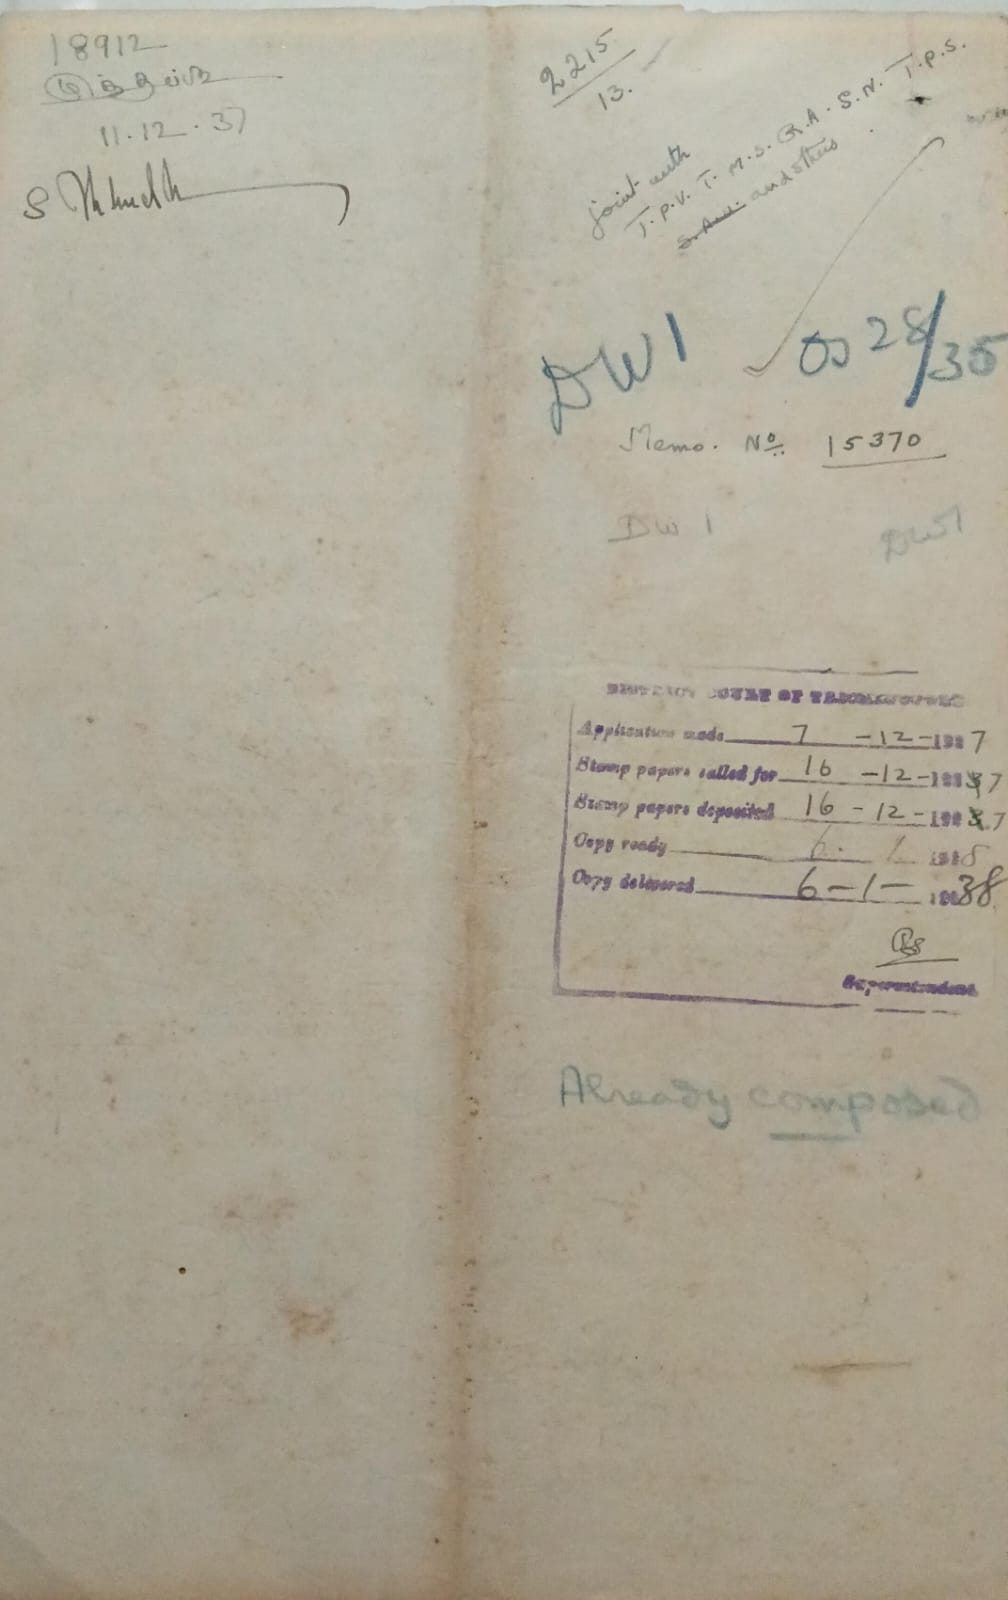 18912
11.12.37
2215
13.
joint with
T.P.V. T. M.S. R.A. S.N. T.P.S.
and others
DW1
OS 28/35
Memo. No. 15370
DW 1
DW1
COURT OF
Application made 7 -12-1937
Stamp papers called for 16 -12-1937
Stamp papers deposited 16 -12-1937
Copy ready 6. 1
Copy delivered 6-1-1938
Superintendent.
Already composed